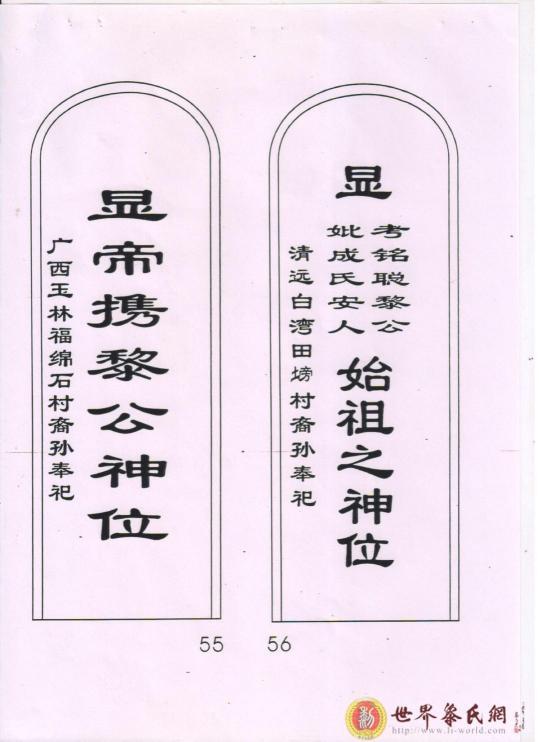 显帝携黎公神位
广西玉林福绵石村裔孙奉祀
55
显
考铭聪黎公
妣成氏安人
始祖之神位
清远白湾田塝村裔孙奉祀
56
世界黎氏網
http://www.li-world.com